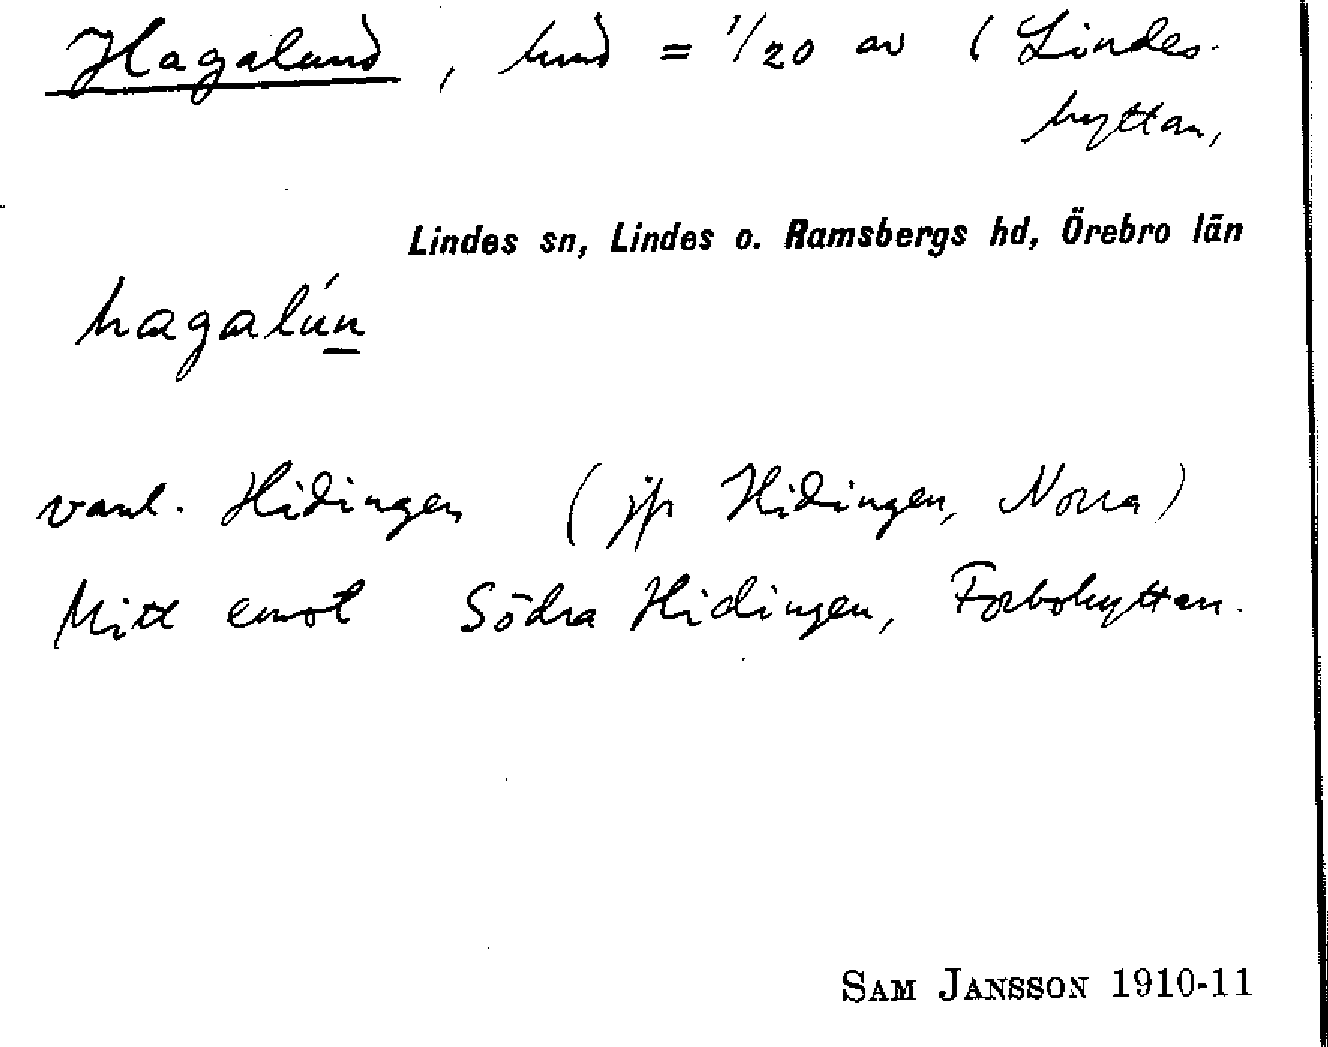 Hagalund, hmd = 1/20 av ( Lindes-
hyttan,
Lindes sn, Lindes o. Ramsbergs hd, Örebro län
hagalún
vanl. Hidingen (jfr Hidingen, Norra)
Mitt emot Södra Hidingen, Forbohyttan.
SAM JANSSON 1910-11